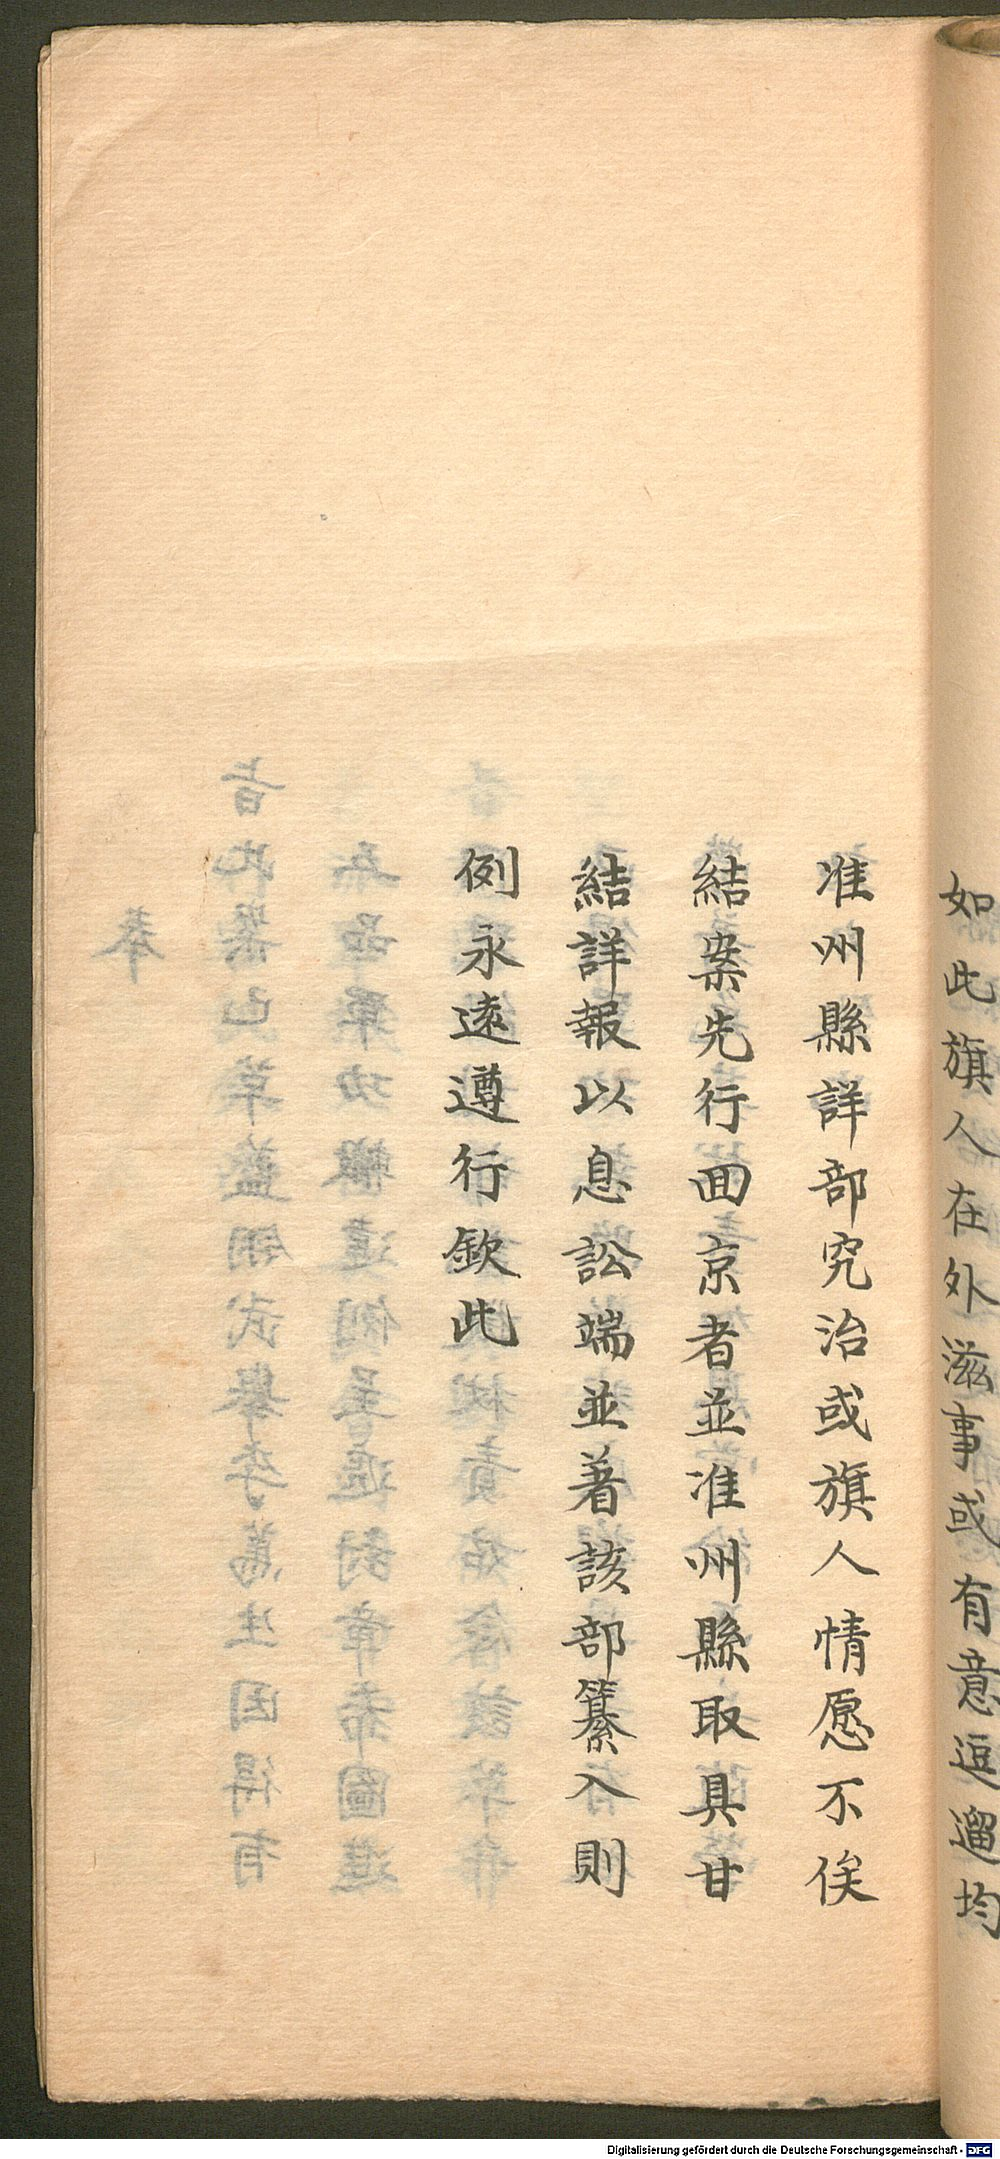 如此旗人在外滋事或有意逗遛均
准州縣詳部究治或旗人情愿不俟
結案先行回京者並准州縣取具甘
結詳報以息訟端並著該部纂入則
例永遠遵行欽此
Digitalisierung gefördert durch die Deutsche Forschungsgemeinschaft - DFG